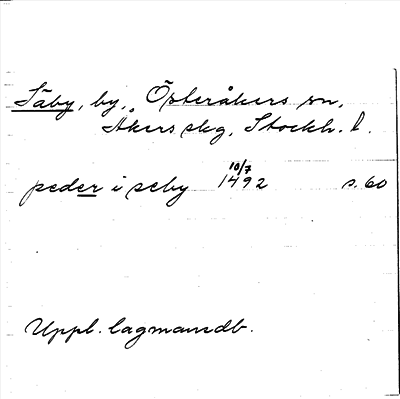 Säby, by, Österåkers sn,
Åkers skg, Stockh. l.
peder i seby 10/7 1492 s. 60
Uppl. lagmansdb.